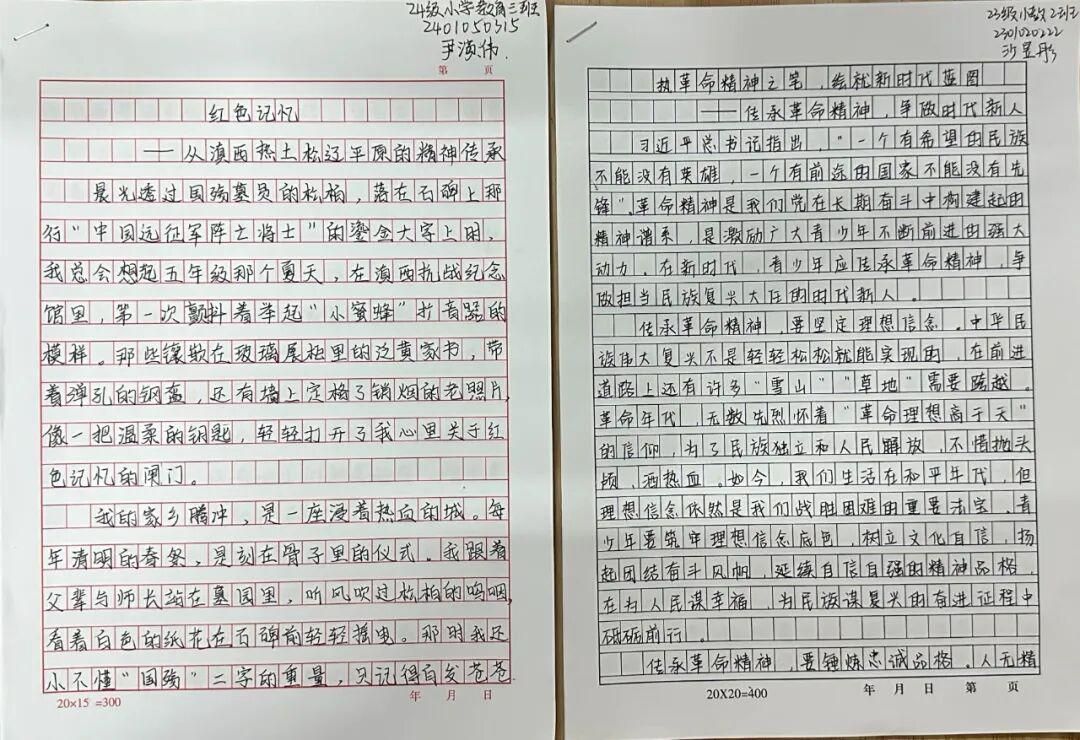 24级小学教育三班
2401050315
尹滇伟.
第 页
红色记忆
——从滇西热土松辽平原的精神传承
晨光透过国殇墓园的松柏，落在石碑上那
行“中国远征军阵亡将士”的鎏金大字上时，
我总会想起五年级那个夏天，在滇西抗战纪念
馆里，第一次颤抖着举起“小蜜蜂”扩音器的
模样。那些镶嵌在玻璃展柜里的泛黄家书，带
着弹孔的钢盔，还有墙上定格了硝烟的老照片，
像一把温柔的钥匙，轻轻打开了我心里关于红
色记忆的闸门。
我的家乡腾冲，是一座浸着热血的城。每
年清明的春祭，是刻在骨子里的仪式。我跟着
父辈与师长站在墓园里，听风吹过松柏的呜咽，
看着白色的纸花在石碑前轻轻摇曳。那时我还
小不懂“国殇”二字的重量，只记得白发苍苍
20×15 =300
年 月 日
23级小教2班
2301020222
沙昱彤
执革命精神之笔，绘就新时代蓝图
——传承革命精神，争做时代新人
习近平总书记指出，“一个有希望的民族
不能没有英雄，一个有前途的国家不能没有先
锋”。革命精神是我们党在长期奋斗中构建起的
精神谱系，是激励广大青少年不断前进的强大
动力。在新时代，青少年应传承革命精神，争
做担当民族复兴大任的时代新人。
传承革命精神，要坚定理想信念。中华民
族伟大复兴不是轻轻松松就能实现的，在前进
道路上还有许多“雪山”“草地”需要跨越。
革命年代，无数先烈怀着“革命理想高于天”
的信仰，为了民族独立和人民解放，不惜抛头
颅，洒热血。如今，我们生活在和平年代，但
理想信念依然是我们战胜困难的重要法宝。青
少年要筑牢理想信念底色，树立文化自信，扬
起团结奋斗风帆，延续自信自强的精神品格，
在为人民谋幸福，为民族谋复兴的奋进征程中
砥砺前行。
传承革命精神，要锤炼忠诚品格。人无精
20X20=400
年 月 日 第 页